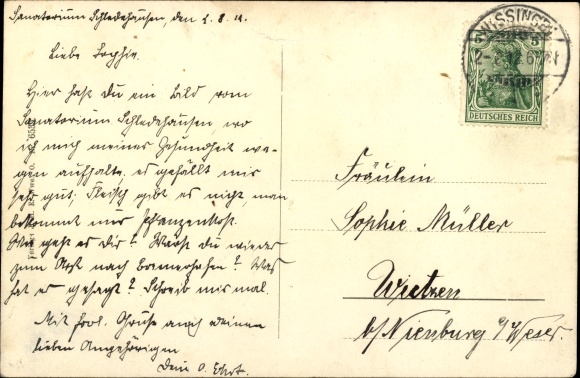 Sanatorium Schledehausen, den 2. 8. 12.
Liebe Sophie.
Hier hast du ein Bild vom
Sanatorium Schledehausen, wo
ich mich meiner Gesundheit we-
gen aufhalte, es gefällt mir
sehr gut; Fleisch gibt es nicht, man
bekommt nur Pflanzenkost.
Wie geht es dir? Warst du wieder
zum Arzt nach Bremerhafen? Was
hat er gesagt? Schreib mir mal.
Mit frdl. Gruß auch deinen
lieben Angehörigen
Dein O.
WISSINGEN
5 5
DEUTSCHES REICH
Fräulein
Sophie Müller
Wietzen
b/Nienburg a/Weser.